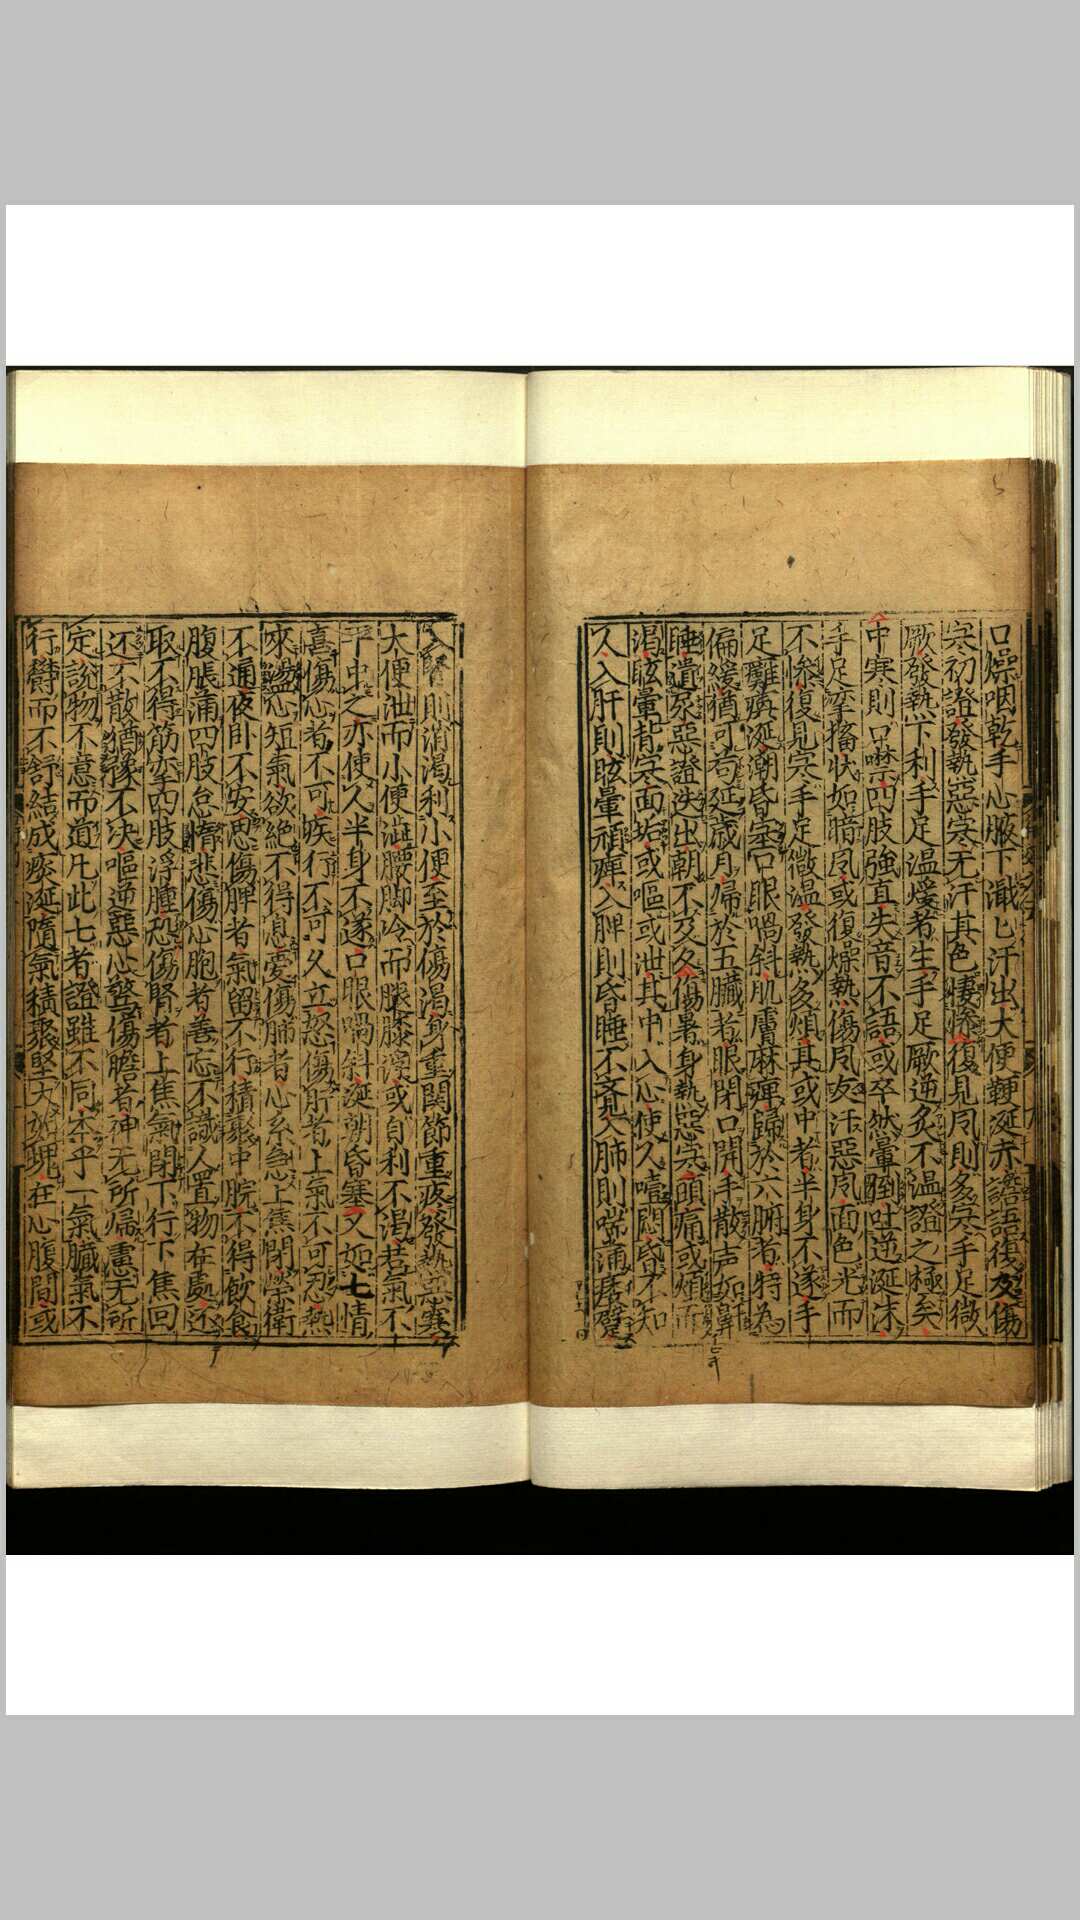 口燥咽乾手心腋下濈匕汗出大便鞕涎赤譫語復及傷
寒初證發熱惡寒无汗其色悽慘復見風則多寒手足微
厥發熱下利手足温煖者生手足厥逆灸不温證之極矣
中寒則口噤四肢強直失音不語或卒然暈倒吐逆涎沫
手足挛搐状如暗風或復燥熱傷風叐汗惡風面色光而
不慘復見寒手足微温發熱多煩其或中者半身不遂手
足難痪涎潮昏塞口眼喎斜肌膚麻痺歸於六腑者特為
偏緩猶可苟延歳月帰於五臟者眼閉口開手散声如鼾
睡遺尿惡證迭出朝不及夕傷暑身熱惡寒頭痛或煩而
渇眩暈背寒面垢或嘔或泄其中入心使久噎悶昏不知
人入肝則眩暈頑痺入脾則昏睡不竟入肺則喘滿痿躄
入腎則消渇利小便至於傷湿身重関節重疼發熱惡寒
大便泄而小便澁腰脚冷而腿膝浮或自利不渇若氣不
平中之亦使人半身不遂口眼喎斜涎朝昏塞又如七情
喜傷心者不可疾行不可久立怒傷肝者上氣不可忍熱
來盪心短氣欲絶不得息憂傷肺者心系急上焦閉榮衛
不通夜卧不安思傷脾者氣留不行積聚中脘不得飲食
腹脹滿四肢怠惰悲傷心胞者善忘不識人置物在處还
取不得筋挛四肢浮腫恐傷腎者上焦氣閉下行下焦回
还不散猶豫不决嘔逆惡心驚傷膽者神无所歸慮无所
定說物不意而道凡此七者證雖不同本乎一氣臟氣不
行欝而不舒結成痰涎隨氣積聚堅大如塊在心腹間或